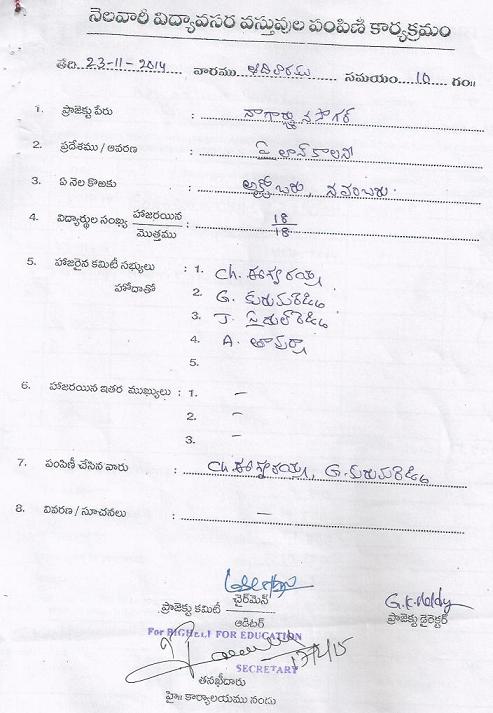 నెలవారీ విద్యావసర వస్తువుల పంపిణీ కార్యక్రమం
తేది 23-11-2014 వారము ఆదివారము సమయం 10 గం॥
1. ప్రాజెక్టు పేరు : నాగార్జునసాగర్
2. ప్రదేశము / ఆవరణ : పైలాన్ కాలనీ
3. ఏ నెల కొఱకు : అక్టోబరు, నవంబరు.
4. విద్యార్థుల సంఖ్య హాజరయిన / మొత్తము : 18 / 18
5. హాజరైన కమిటీ సభ్యులు : 1. Ch. ఈశ్వరయ్య
హోదాతో 2. G.
3. J.
4. A.
5.
6. హాజరయిన ఇతర ముఖ్యులు : 1. –
2. –
3. –
7. పంపిణీ చేసిన వారు : Ch. ఈశ్వరయ్య, G.
8. వివరణ / సూచనలు : –
ప్రాజెక్టు కమిటీ ఛైర్‌మెన్ / ఆడిటర్
G.K. Reddy
ప్రాజెక్టు డైరెక్టర్
For BIGHELP FOR EDUCATION
SECRETARY
తనఖీదారు
హై॥ కార్యాలయము నందు